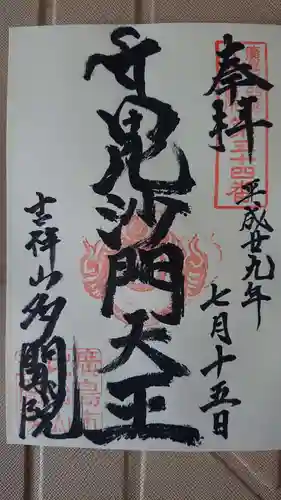 奉拝
平成廿九年
七月十五日
毘沙門天王
吉祥山多聞院
廣島市